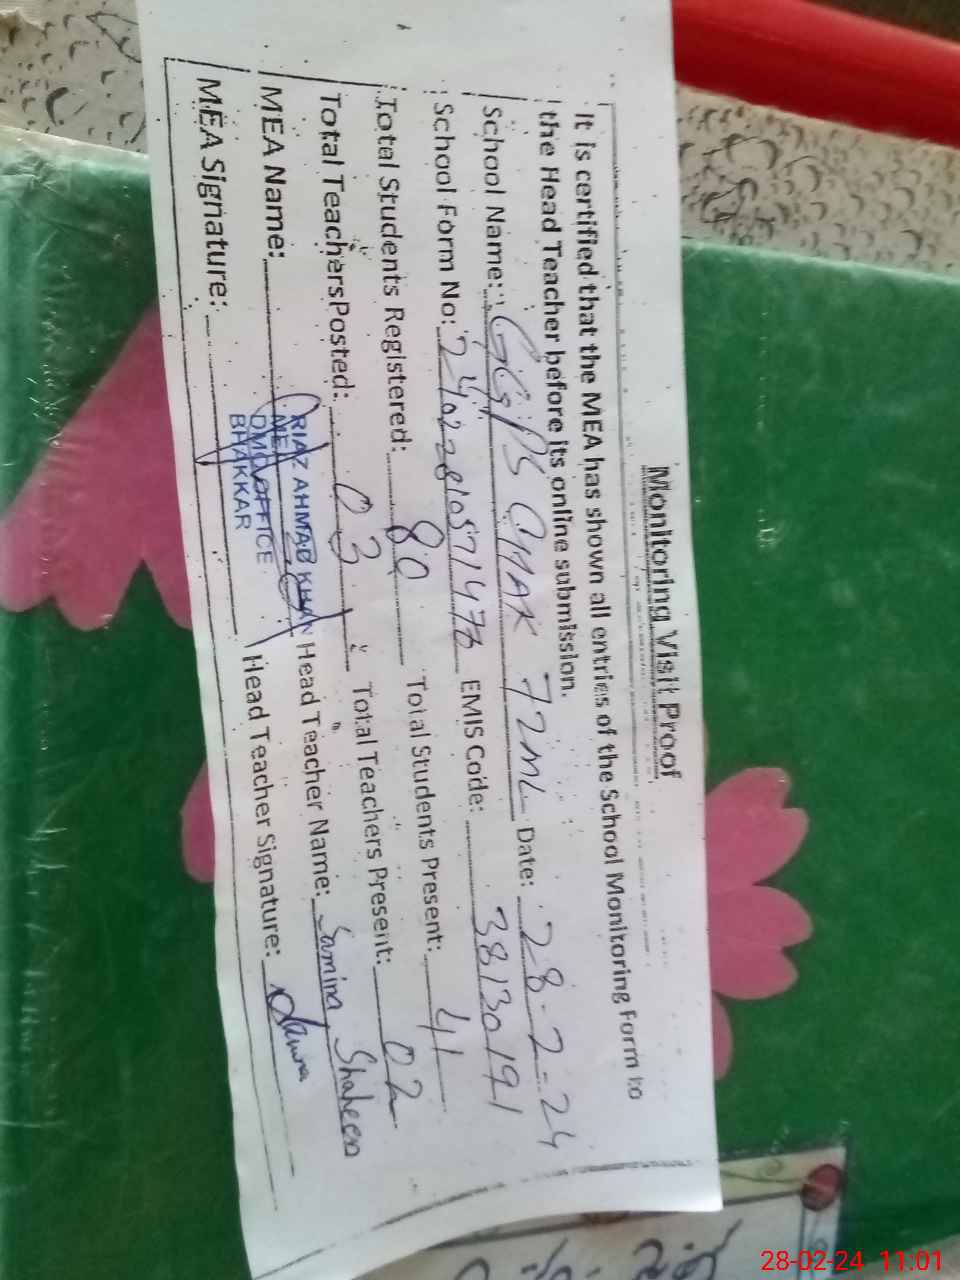 Monitoring Visit Proof
It is certified that the MEA has shown all entries of the School Monitoring Form to
the Head Teacher before its online submission.
School Name: GGPS CHAK 72ML Date: 28-2-24
School Form No: EMIS Code: 38130191
Total Students Registered: 80 Total Students Present: 41
Total TeachersPosted: 03 Total Teachers Present: 02
MEA Name: RIAZ AHMAD KHAN Head Teacher Name: Samina Shaheen
MEA
DMO OFFICE
BHAKKAR
MEA Signature: Head Teacher Signature:
28-02-24 11:01